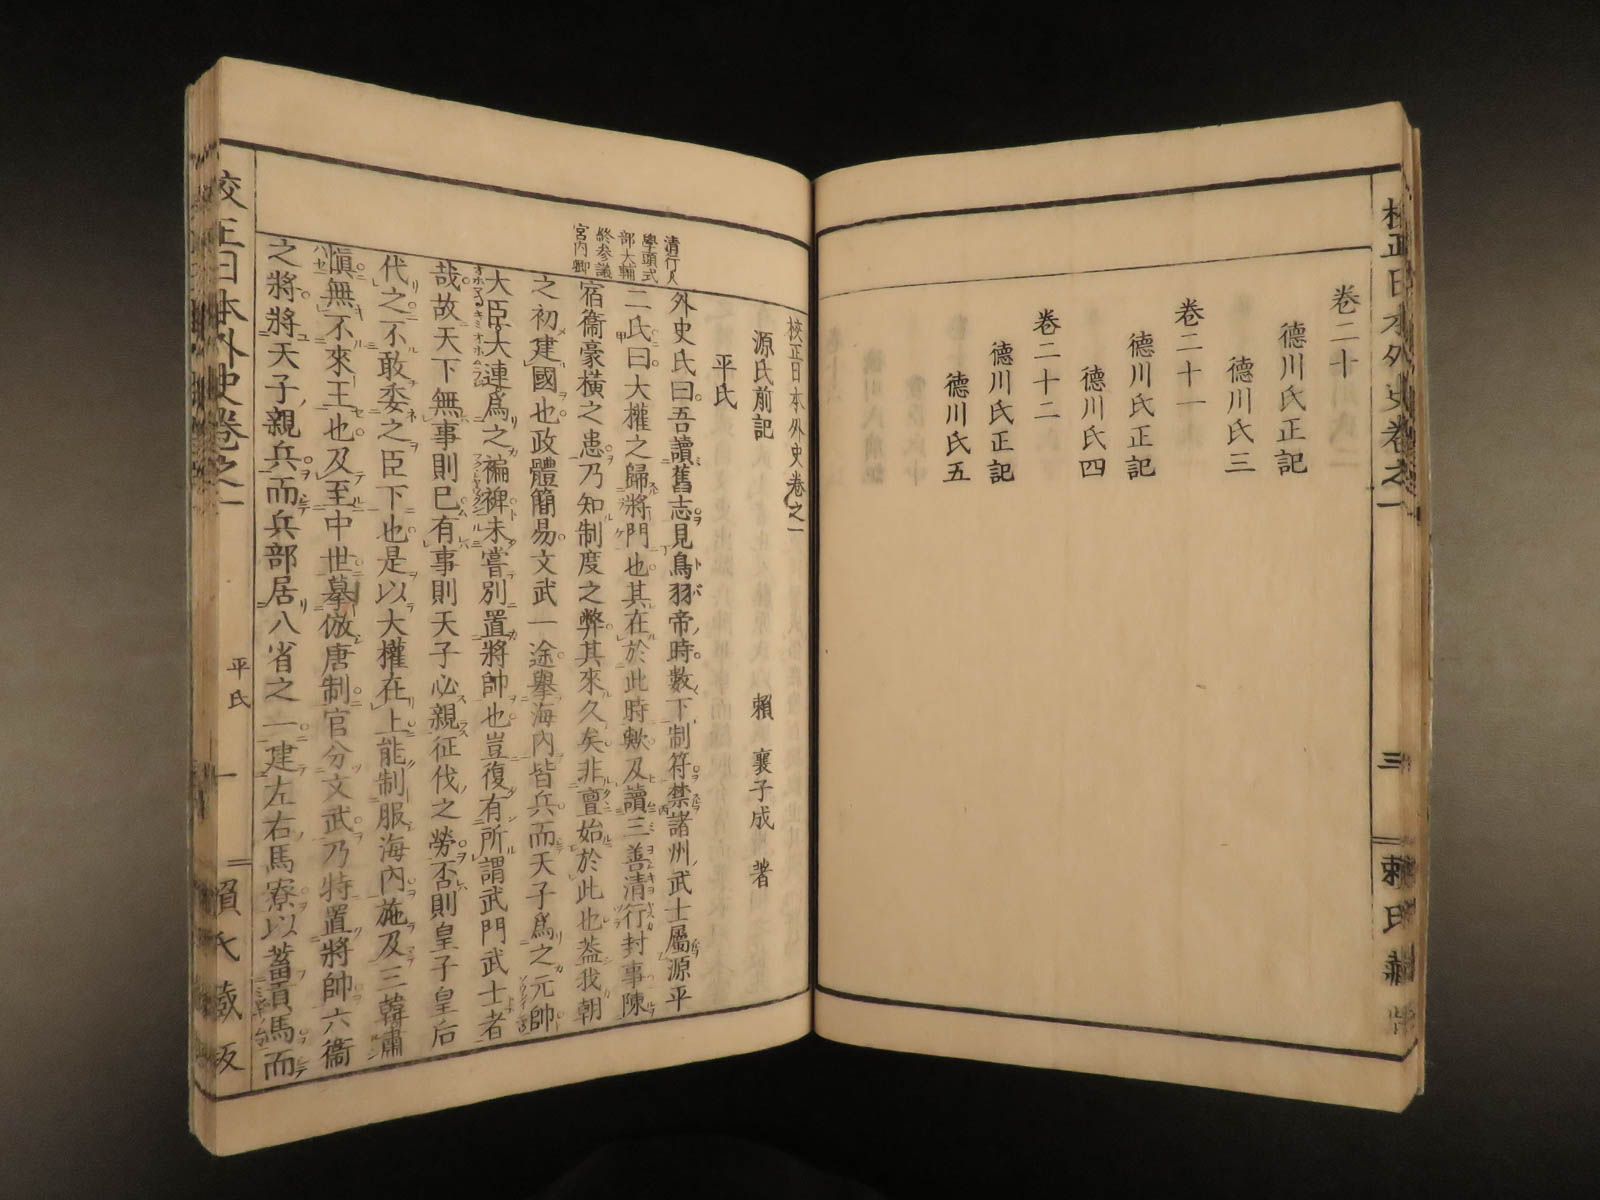 校正日本外史卷之一
三
賴氏藏
卷二十
德川氏正記
德川氏三
卷二十一
德川氏正記
德川氏四
卷二十二
德川氏正記
德川氏五
校正日本外史卷之一
源氏前記
賴 襄子成 著
平氏
清行人
學頭式
部大輔
終參議
宮内卿
外史氏曰吾讀舊志見鳥羽帝時數下制符禁諸州武士屬源平
二氏曰大權之歸將門也其在於此時歟及讀三善清行封事陳
宿衞豪橫之患乃知制度之弊其來久矣非亶始於此也葢我朝
之初建國也政體簡易文武一途擧海内皆兵而天子爲之元帥
大臣大連爲之褊裨未嘗別置將帥也豈復有所謂武門武士者
哉故天下無事則已有事則天子必親征伐之勞否則皇子皇后
代之不敢委之臣下也是以大權在上能制服海内施及三韓肅
愼無不來王也及至中世摹倣唐制官分文武乃特置將帥六衞
之將將天子親兵而兵部居八省之一建左右馬寮以蓄貢馬而
校正日本外史卷之一
平氏
一
賴氏藏版